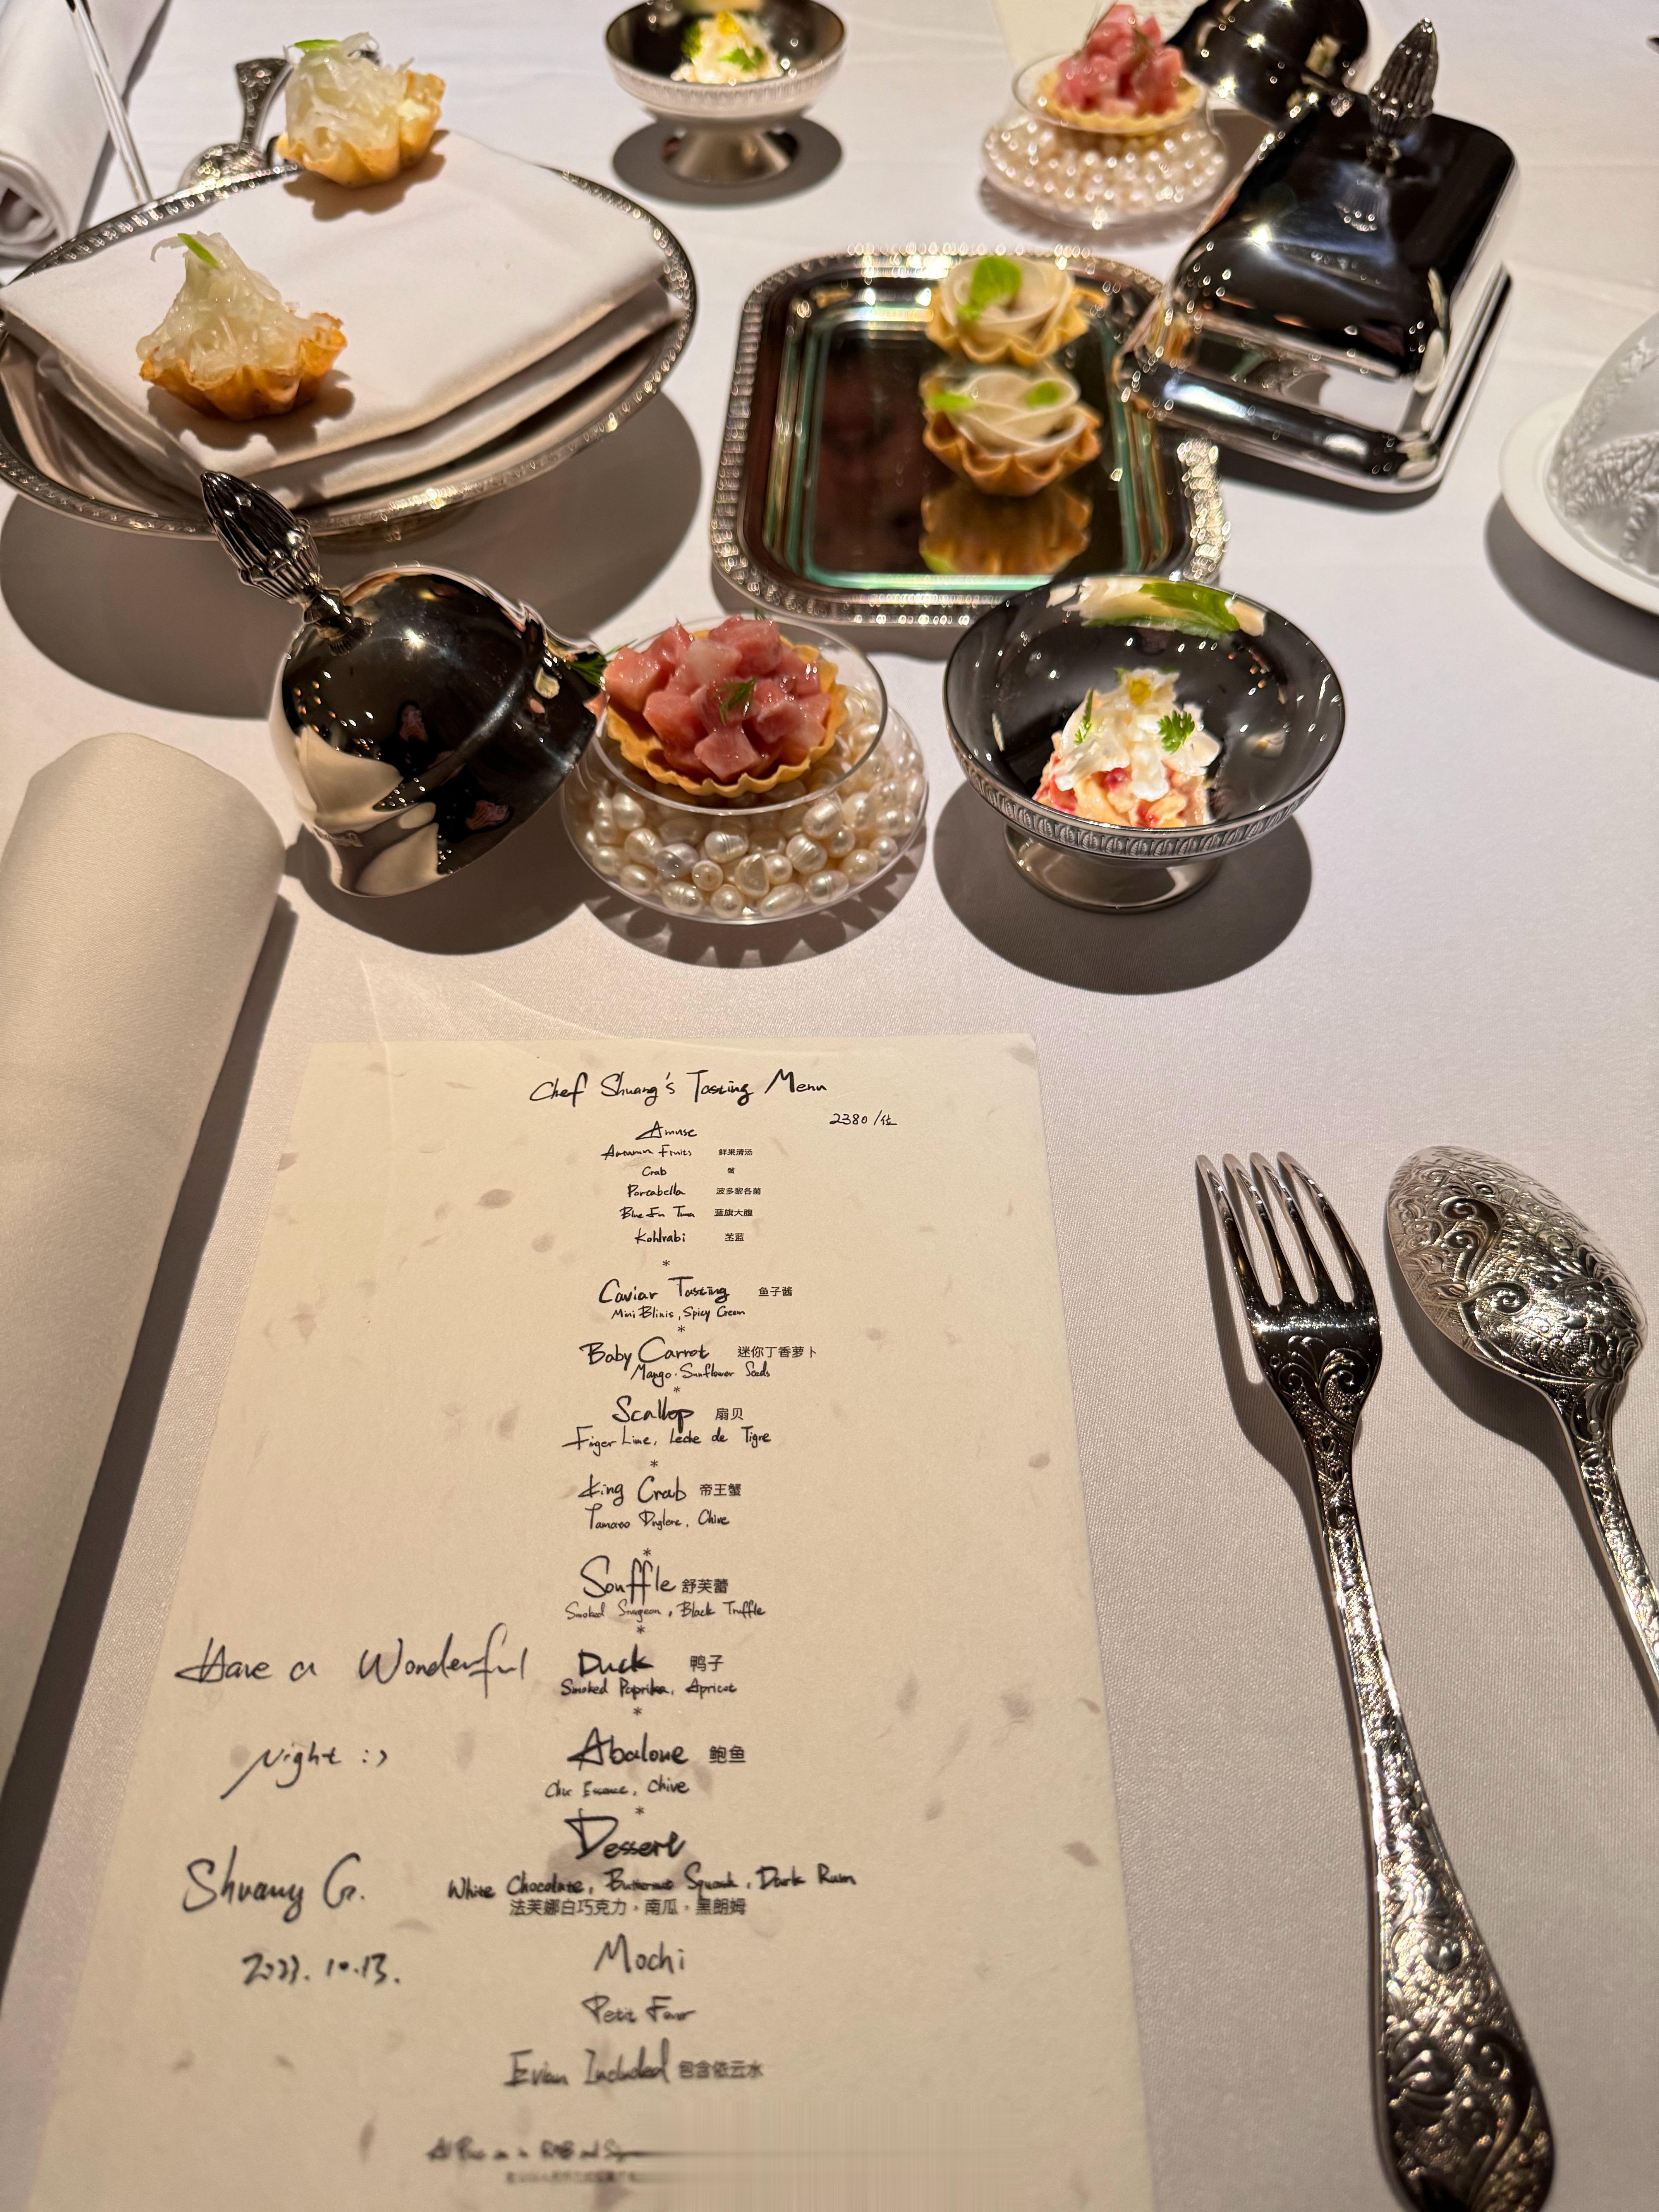 Chef Shuang's Tasting Menu
2380/位
Amuse
Autumn Fruits 鲜果清汤
Crab 蟹
Portabella 波多黎各菌
Blue Fin Tuna 蓝旗大腹
Kohlrabi 苤蓝
*
Caviar Tasting 鱼子酱
Mini Blinis, Spicy Cream
*
Baby Carrot 迷你丁香萝卜
Mango. Sunflower Seeds
*
Scallop 扇贝
Finger Lime, Leche de Tigre
*
King Crab 帝王蟹
Chive
*
Souffle 舒芙蕾
Smoked Sturgeon, Black Truffle
*
Duck 鸭子
Smoked Paprika, Apricot
*
Abalone 鲍鱼
Essence, Chive
*
Dessert
White Chocolate, Butternut Squash, Dark Rum
法芙娜白巧克力，南瓜，黑朗姆
Mochi
Petit Four
Evian Included 包含依云水
Have a Wonderful
Night :)
Shuang G.
2023.10.13.